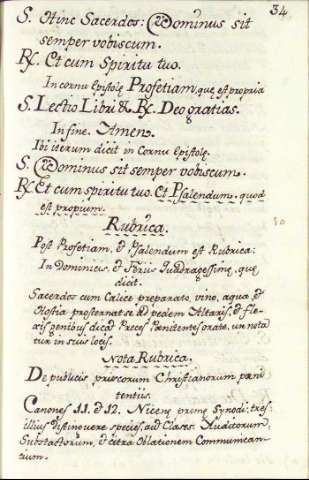 34
S. Hinc Sacerdos: Dominus sit
semper vobiscum.
R. Et cum Spiritu tuo.
In cornu Epistolę Profetiam, quę est propria
S. Lectio Libri &. R. Deo gratias.
In fine. Amen.
Ibi iterum dicit in Cornu Epistolę.
S. Dominus sit semper vobiscum.
R. Et cum spiritu tuo. Et Psalendum, quod
est proprium.
Rubrica.
Post Profetiam, & Psalendum est Rubrica:
In Dominicis, & Feriis Quadragessimę, quę
dicit.
Sacerdos cum Calice preparato, vino, aqua, &
Hostia prosternat se ad pedem Altaris, & fle-
xis genibus dicat Preces Penitentes orate, ut nota
tur in suis locis.
Nota Rubrica.
De publicis priscorum Christianorum pœni
tentiis.
Canones 11. & 12. Nicenę primę Synodi, tres
illius distinguere species, aid Clases: Auditorum,
Substractorum, & citra Oblationem Communican-
tium.